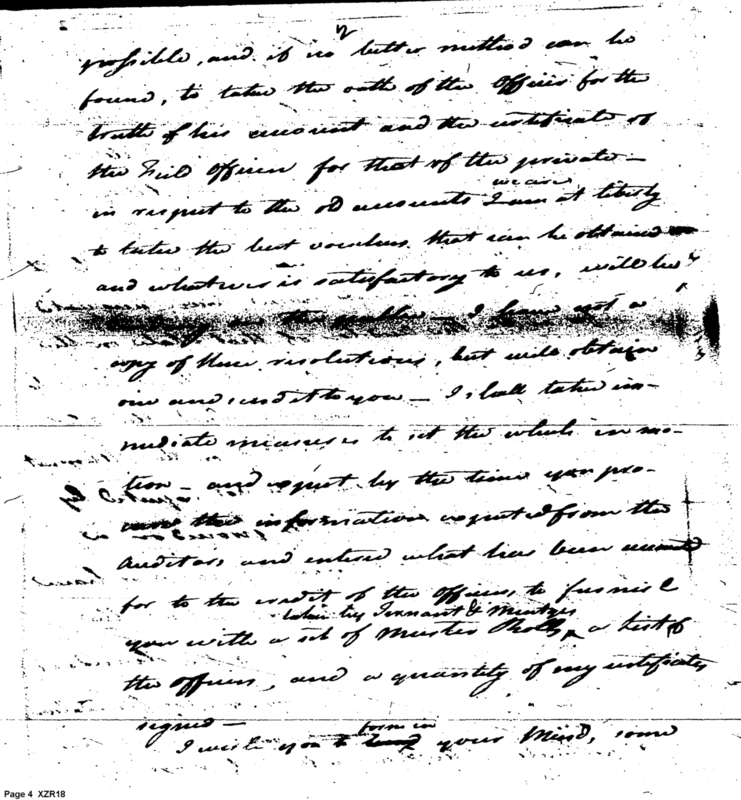 2
possible, and if no better method can be
found, to take the oath of the Officer for the
truth of his account and the certificate of
the Feild Officer for that of the private —
we are
in respect to the old accounts I am at liberty
to take the best vouchers that can be obtained
and whatever is satisfactory to us, will be
the public — I have not a
copy of these resolutions, but will obtain
one and send it to you — I shall take im-
mediate measures to set the whole in mo-
tion — and expect by the time you pro-
cure the information expected from the
Auditors and entered what has been
for to the credit of the Officers, to furnish
taken by Tennant & Mentges
you with a set of Muster Rolls, a List of
the Officers, and a quantity of my certificates
signed —
form in
I wish you to your Mind, some
Page 4 XZR18